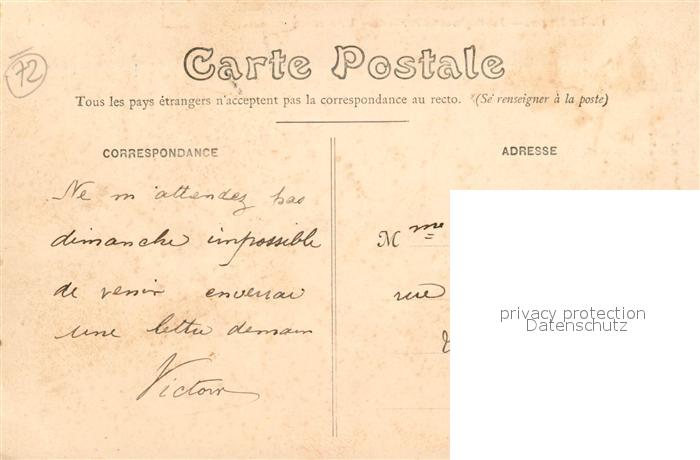 72
Carte Postale
Tous les pays étrangers n'acceptent pas la correspondance au recto. (Se renseigner à la poste)
CORRESPONDANCE
Ne m'attendez pas
dimanche impossible
de venir enverrai
une lettre demain
Victor
ADRESSE
Mme
rue
privacy protection
Datenschutz